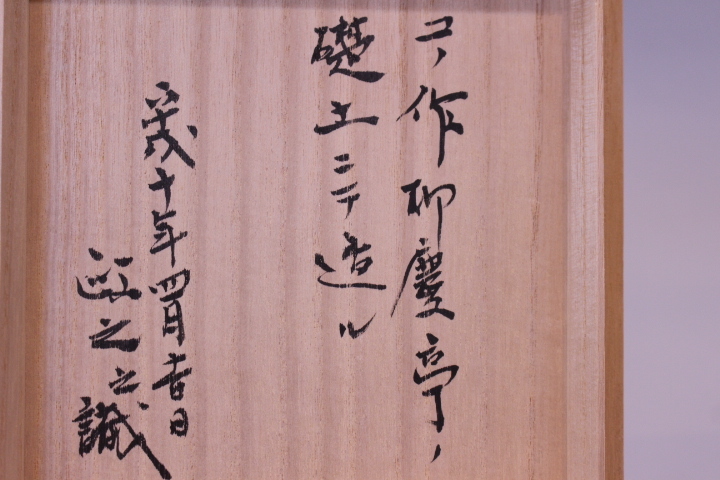 コノ作柳慶亭ノ
礎土ニテ造ル
平成十年四月吉日
之之識